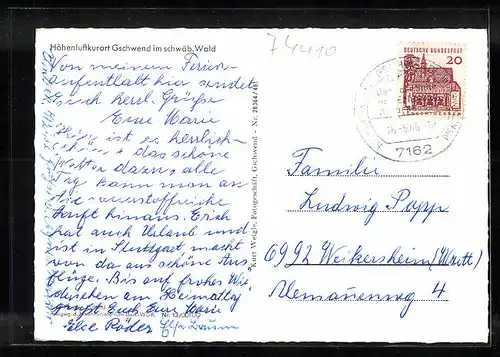 Höhenluftkurort Gschwend im schwäb. Wald
74410
DEUTSCHE BUNDESPOST
20
7162
Von meinem Ferien-
aufenthalt hier sendet
Euch herzl. Grüße
Eure Marie
Hier ist es herrlich
schön + das schöne
Wetter dazu, alle
Tag kann man an
die sauerstoffreiche
Luft hinaus. Erich
hat auch Urlaub und
ist in Stuttgart macht
von da aus schöne Aus-
flüge. Bis auf frohes Wie-
dersehen am Heimattag
grüßt Euch Eure Marie
Else Röder
Kurt Weigle, Fotogeschäft, Gschwend - Nr. 20364/46
Familie
Ludwig Popp
6992 Weikersheim (Württ)
4